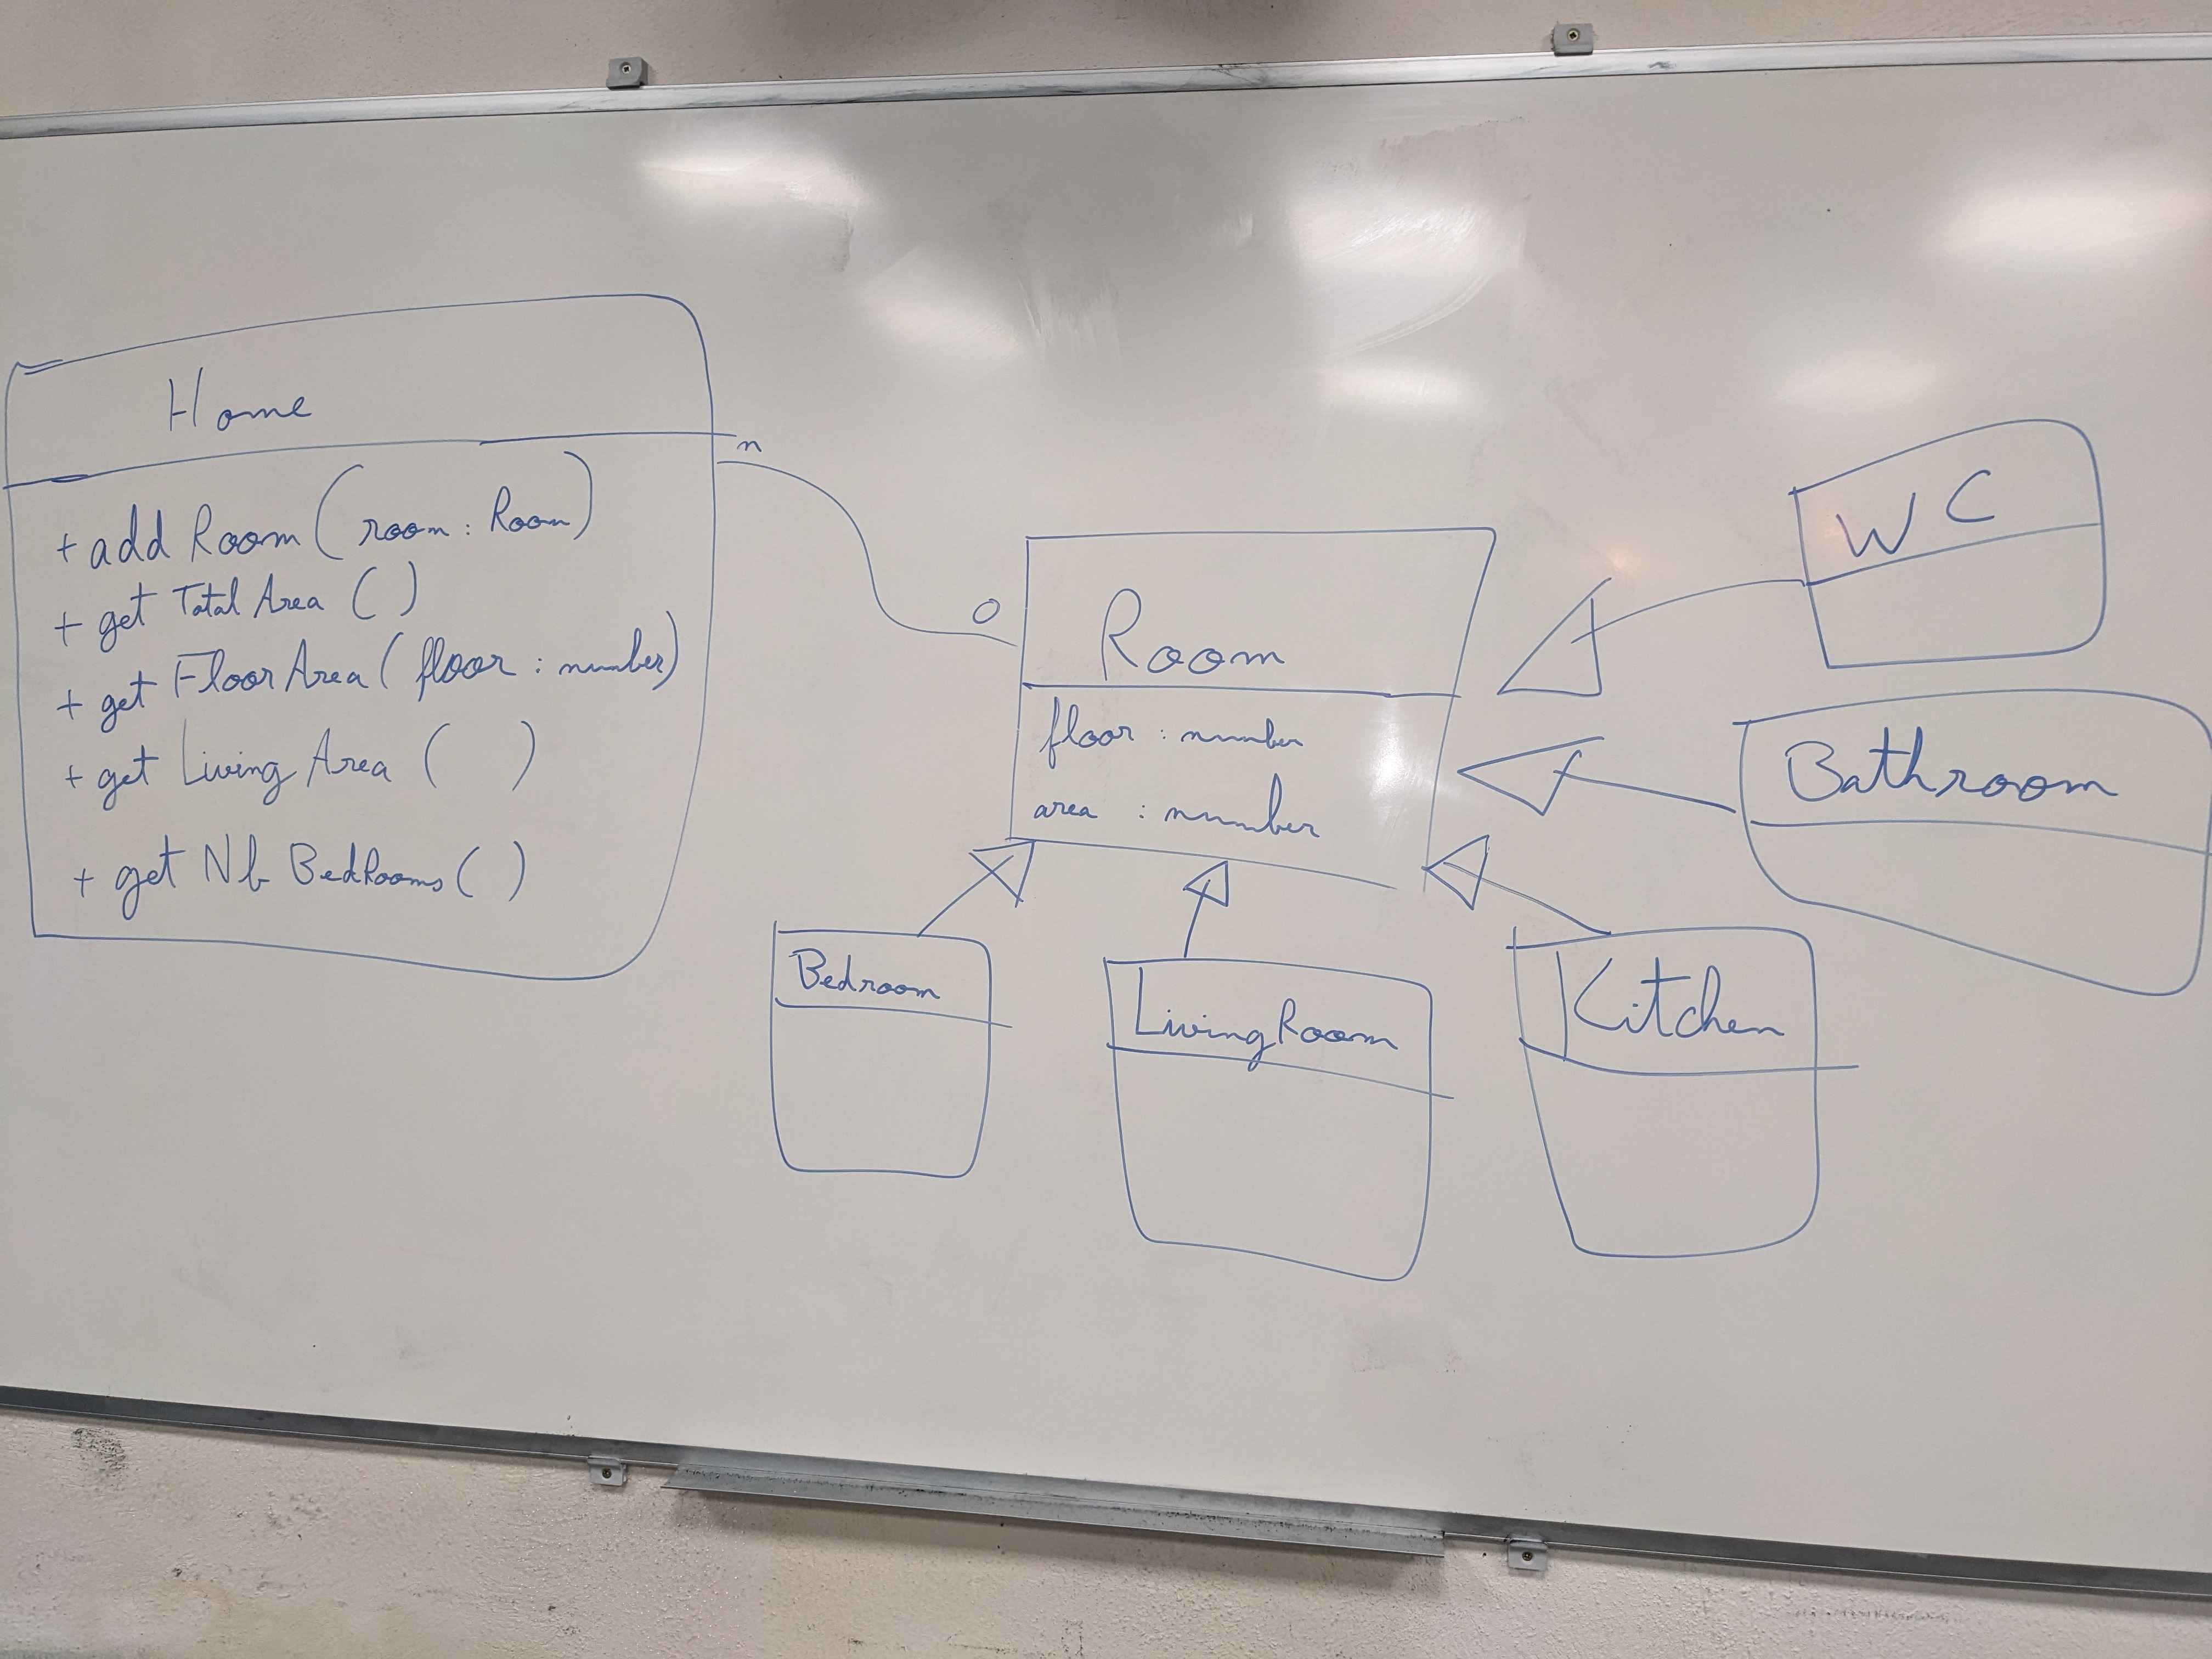 Home
+ add Room (room : Room)
+ get Total Area ( )
+ get Floor Area (floor : number)
+ get Living Area ( )
+ get Nb BedRooms ( )
n
0
Room
floor : number
area : number
WC
Bathroom
Bedroom
LivingRoom
Kitchen